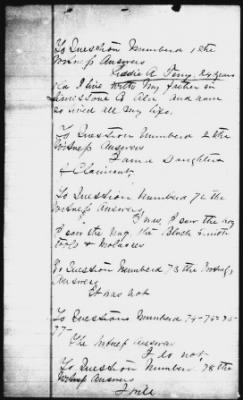 To Question Numbered 1 the
Witness Answers
Lizzie A 24 years
old I live with My father in
Limestone Co Ala and have
so lived all My life.
To Question Numbered 2 the
Witness Answers
I am a Daughter
& Claimant
To Question Numbered 72 the
Witness Answers
I was, I saw the
I saw the Mag. the Black Smith
Tools & Molasses
To Question Numbered 73 the Witness
Answers
It was not
To Questions Numbered 74-75-76-
77-
The Witness answers
I do not
To Question Number 78 the
Witness Answers